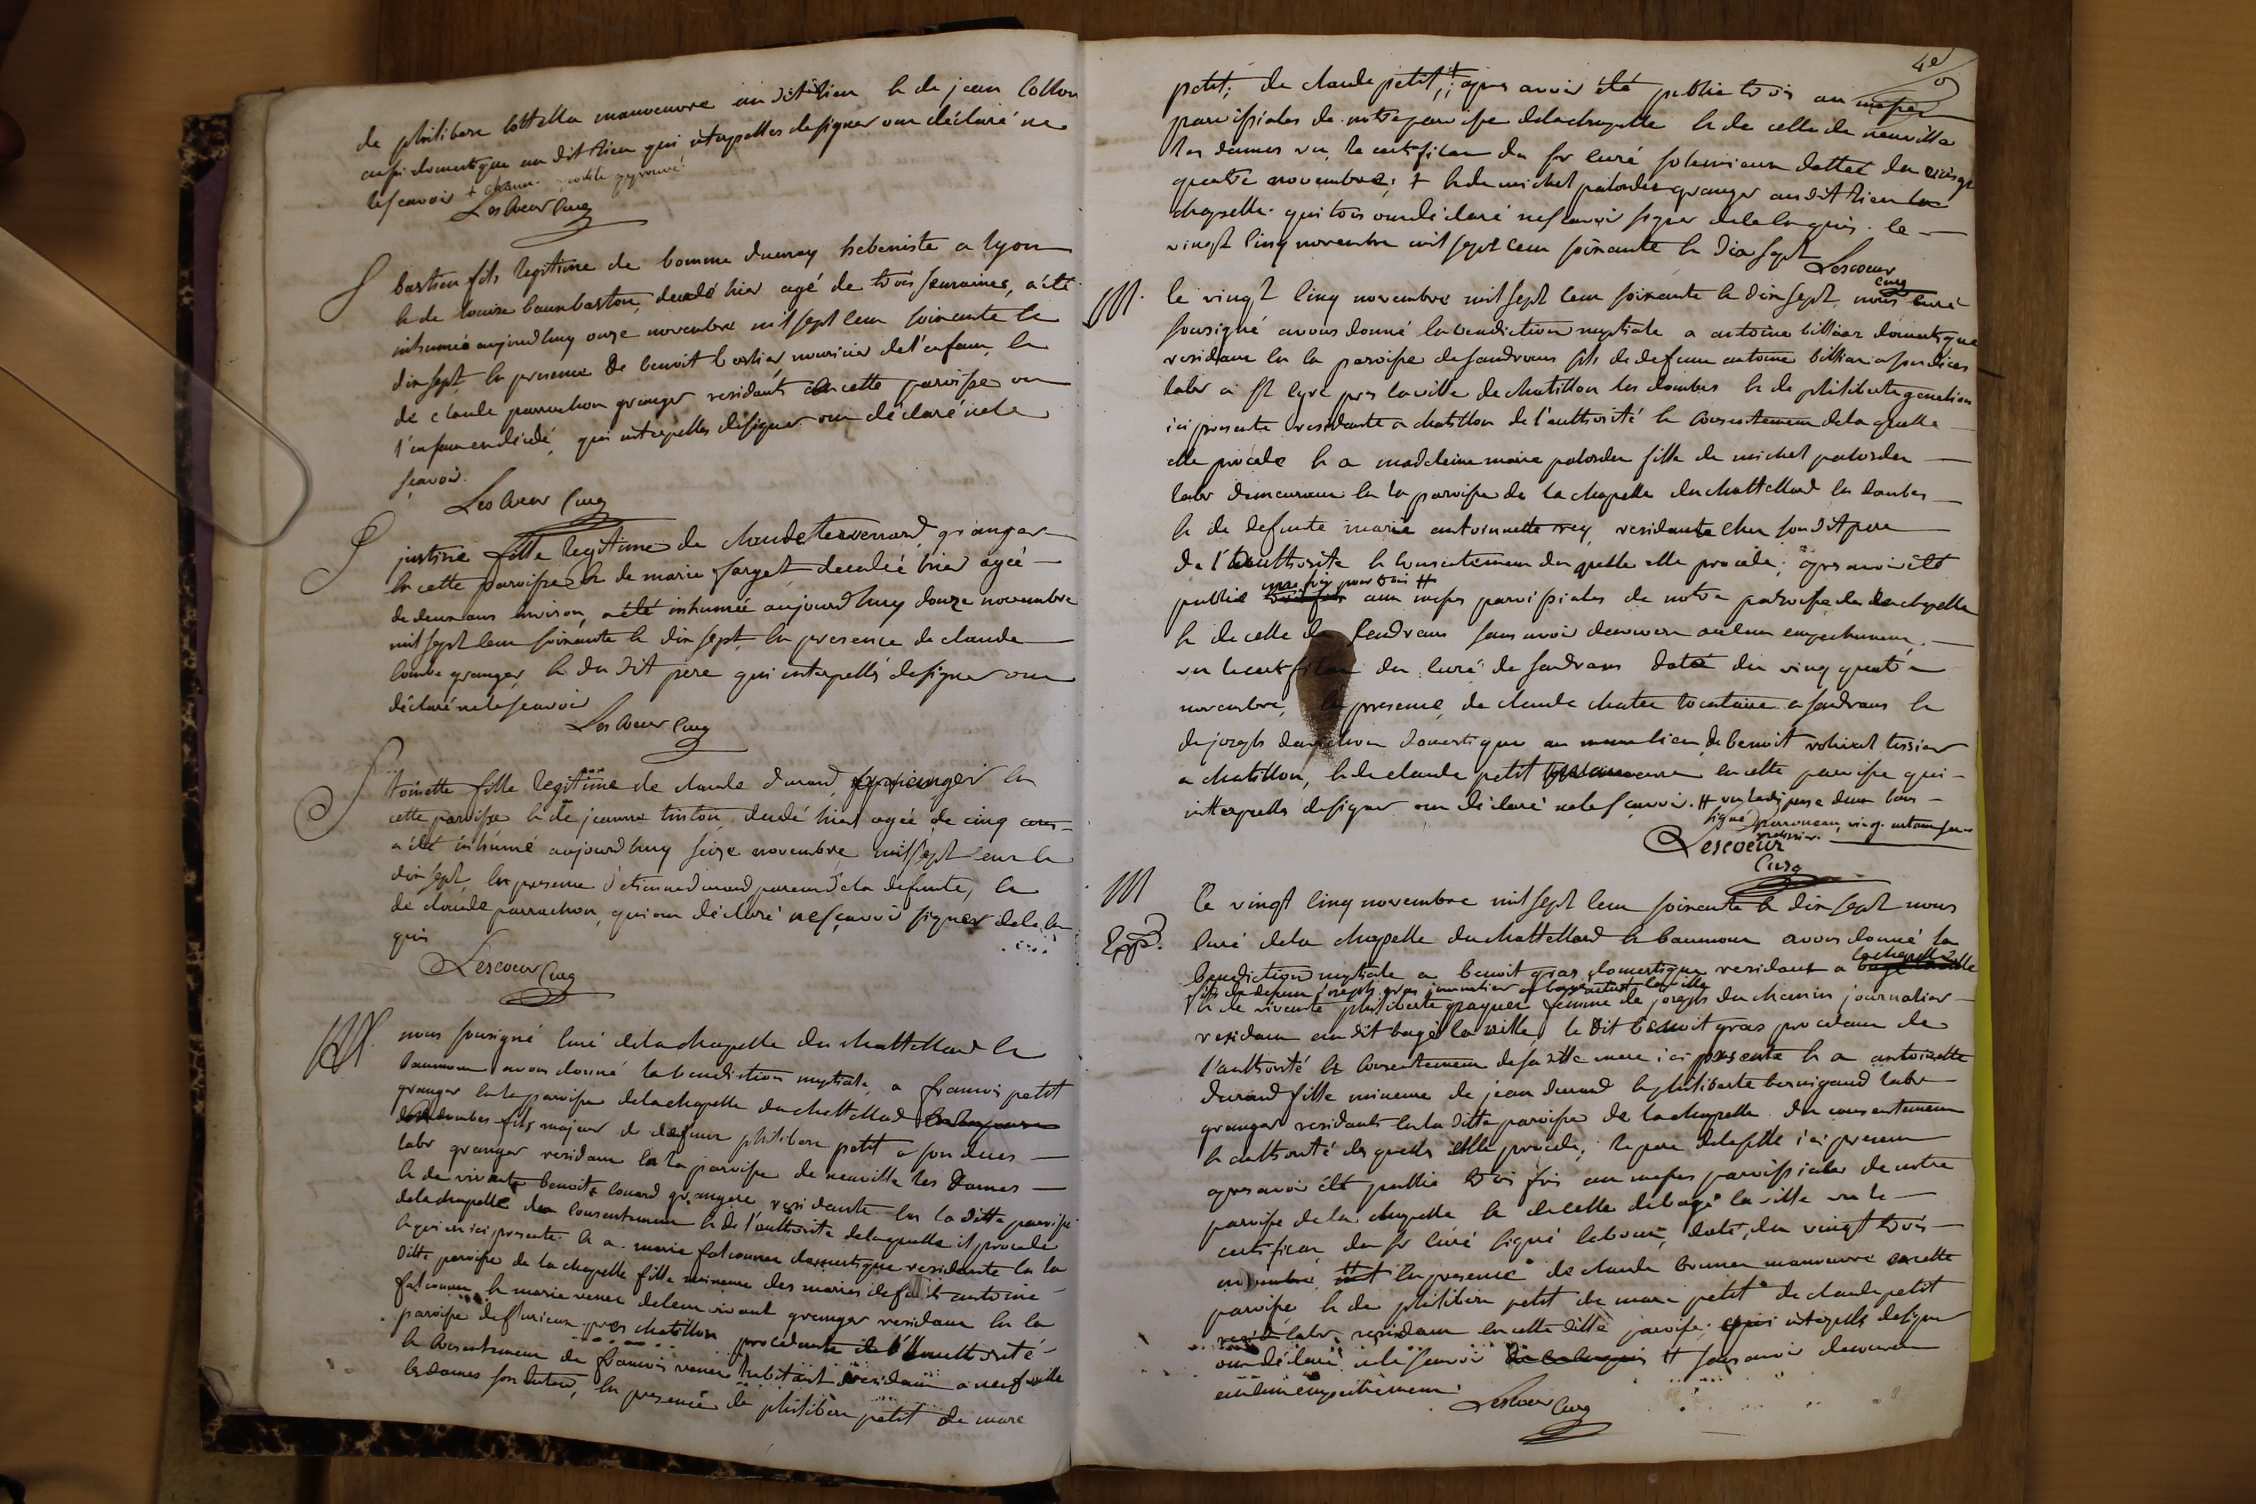 de philibert cottella manoeuvre au dit lieu & de jean collon
aussi domestique au dit lieu qui interpelles de signer ont déclaré ne
le scavoir
Lescoeur Curé
S
bastien fils legitime de bonnu dunray hebeniste a lyon
& de louise baun baston, decedé hier agé de trois semaines, a été
inhumé aujourdhuy onze novembre mil sept cent soixante &
dix sept en presence de benoit nouricier de l'enfant &
de claude parrachon granger residants en cette paroisse ou
l'enfant est decedé, qui interpelles de signer ont déclaré ne le
scavoir.
Lescoeur Curé
S
justine fille legitime de claude tervenard, granger
en cette paroisse & de marie farget decedée hier agée
de deux ans environ, a été inhumée aujourdhuy douze novembre
mil sept cent soixante & dix sept, en presence de claude
combe granger & du dit pere qui interpellés de signer ont
déclaré ne le scavoir
Lescoeur Curé
S
toinette fille legitime de claude durand, granger en
cette paroisse & de jeanne tinton, decedé hier agée de cinq ans
a été inhumé aujourdhuy seize novembre mil sept cent &
dix sept, en presence d'etienne durand parent de la defunte, &
de claude parrachon, qui ont déclaré ne scavoir signer de ce en
quis
Lescoeur Curé
M.
nous sousigné curé de la chapelle du chattellard &
baumont avons donné la benediction nuptiale, a francois petit
granger en la paroisse de la chapelle du chattellard
dombes fils majeur de defunt philibert petit a son deces
labr granger residant en la paroisse de neuville les Dames
& de vivante benoite conard grangere, residante en la ditte paroisse
de la chapelle du consentement & de l'authorité de laquelle il procede
& qui est ici presente & a marie falconnet domestique residante en la
ditte paroisse de la chapelle fille mineure des maries defunts antoine
falconnet & marie venet de leur vivant granger residant en la
paroisse de sulieux pres chatillon procedante de l'authorité
& consentement de francois venet habitant residant a neufville
les dames son tuteur, en presence de philibert petit de marc
40
petit; de claude petit; apres avoir été publié trois aux messes
paroissiales de notre paroisse de la chapelle & de celle de neuville
les dames vu, le certificat du sr curé datté du vingt
quatre novembre; + & de michel palordet granger au dit lieu
chapelle qui tous ont déclaré ne scavoir signer de ce enquis. le
vingt cinq novembre mil sept cent soixante & dix sept
Lescoeur
Curé
M.
le vingt cinq novembre mil sept cent soixante & dix sept nous curé
sousigné avons donné la benediction nuptiale a antoine billiat domestique
residant en la paroisse de sandrans fils de defunt antoine billiat a son deces
labr a st cyr pres la ville de chatillon les dombes & de philiberte genetion
ici presente residante a chatillon de l'authorité & consentement de la quelle
elle procede & a madeleine marie palordet fille de michel palordet
labr demeurant en la paroisse de la chapelle du chattellard en dombes
& de defunte marie antoinette rey, residante chez son dit pere
de l'authorité & consentement du quelle elle procede; apres avoir été
publié une fois pour trois # aux messes paroissiales de notre paroisse de la chapelle
& de celle de sandrans sans avoir decouvert aucun empechement,
vu le certificat du curé de sandrans daté du vingt quatre
novembre, en presence, de claude chatel locataire a sandrans &
de joseph domestique au lieu, de benoit tissier
a chatillon, & de claude petit manoeuvre en cette paroisse qui
interpelles de signer ont déclaré ne le scavoir. # vu la dispense deux bans
signé
Lescoeur
Curé
M
Exp.
le vingt cinq novembre mil sept cent soixante & dix sept nous
curé de la chapelle du chattellard & baumont avons donné la
la chapelle
benediction nuptiale a benoit gras domestique residant a
fils de defunt joseph gras journalier a bage la ville
& de vivante philiberte paquet femme de joseph du chemin journalier
residant au dit bagé la ville le dit benoit gras procedant de
l'authorité & consentement de sa ditte mere ici presente & a antoinette
durand fille mineure de jean durand & philiberte bernigaud labr
granger residants en la ditte paroisse de la chapelle du consentement
& authorité des quels elle procede; le pere de la fille ici present
apres avoir été publié trois fois aux messes paroissiales de notre
paroisse de la chapelle & de celle de bagé la ville vu le
certificat du sr curé signé daté, du vingt trois
novembre # en presence de claude brunet manoeuvre en cette
paroisse & de philibert petit de marc petit de claude petit
labr residant en cette ditte paroisse; qui interpellés de signer
ont déclaré ne le scavoir # sans avoir decouvert
aucun empechement.
Lescoeur Curé